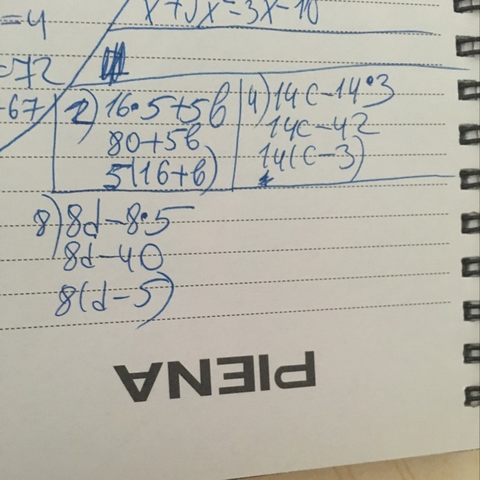 =4
=72
67
2) 16•5+5b
80+5b
5(16+b)
4) 14c-14•3
14c-42
14(c-3)
8) 8d-8•5
8d-40
8(d-5)
PIENA